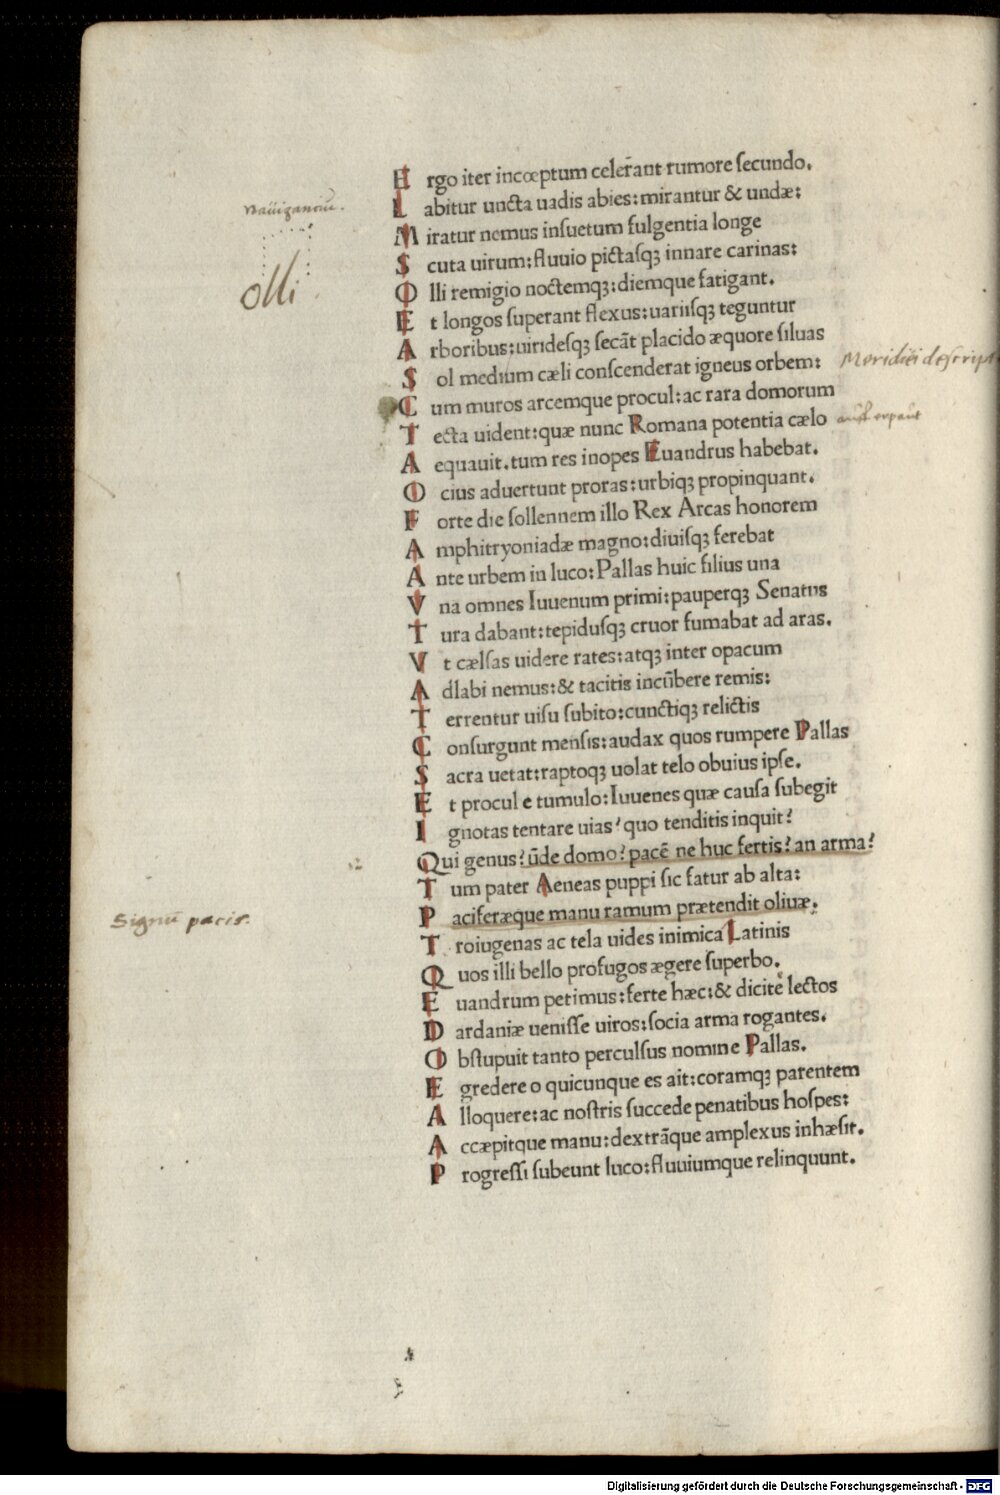 E rgo iter incœptum celerãnt rumore ſecundo.
L abitur uncta uadis abies: mirantur & undæ:
M iratur nemus inſuetum fulgentia longe
S cuta uirum: fluuio pictaſqꝫ innare carinas:
O lli remigio noctemqꝫ: diemque fatigant.
olli
E t longos ſuperant flexus: uariiſqꝫ teguntur
A rboribus: uirideſqꝫ ſecãt placido æquore ſiluas
S ol medium cæli conſcenderat igneus orbem:
C um muros arcemque procul: ac rara domorum
T ecta uident: quæ nunc Romana potentia cælo
A equauit. tum res inopes Euandrus habebat.
O cius aduertunt proras: urbiqꝫ propinquant.
F orte die ſollennem illo Rex Arcas honorem
A mphitryoniadæ magno: diuiſqꝫ ferebat
A nte urbem in luco: Pallas huic filius una
V na omnes Iuuenum primi: pauperqꝫ Senatus
T ura dabant: tepiduſqꝫ cruor fumabat ad aras.
V t cælſas uidere rates: atqꝫ inter opacum
A dlabi nemus: & tacitis incũbere remis:
T errentur uiſu ſubito: cunctiqꝫ relictis
C onſurgunt menſis: audax quos rumpere Pallas
S acra uetat: raptoqꝫ uolat telo obuius ipſe.
E t procul e tumulo: Iuuenes quæ cauſa ſubegit
I gnotas tentare uias? quo tenditis inquit?
Qui genus? ũde domo? pacẽ ne huc fertis? an arma?
T um pater Aeneas puppi ſic fatur ab alta:
P aciferæque manu ramum prætendit oliuæ.
Signũ pacis.
T roiugenas ac tela uides inimica Latinis
Q uos illi bello profugos ægere ſuperbo.
E uandrum petimus: ferte hæc: & dicite lectos
D ardaniæ ueniſſe uiros: ſocia arma rogantes.
O bſtupuit tanto perculſus nomine Pallas.
E gredere o quicunque es ait: coramqꝫ parentem
A lloquere: ac noſtris ſuccede penatibus hoſpes:
A ccæpitque manu: dextrãque amplexus inhæſit.
P rogreſſi ſubeunt luco: fluuiumque relinquunt.
Digitalisierung gefördert durch die Deutsche Forschungsgemeinschaft - DFG